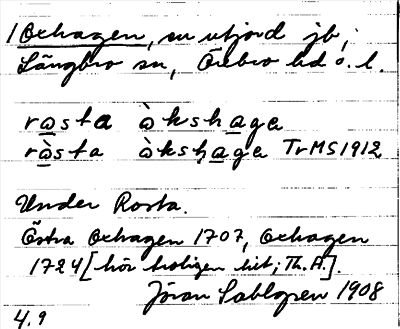 1 Oxhagen, en utjord jb,
Längbro sn, Örebro hd o. l.
rosta òkshaga
ròsta òkshaga TrMS 1912
Under Rosta.
Östra Oxhagen 1707, Oxhagen
1724 [hör troligen hit; Th. A.].
Jöran Sahlgren 1908
4.9